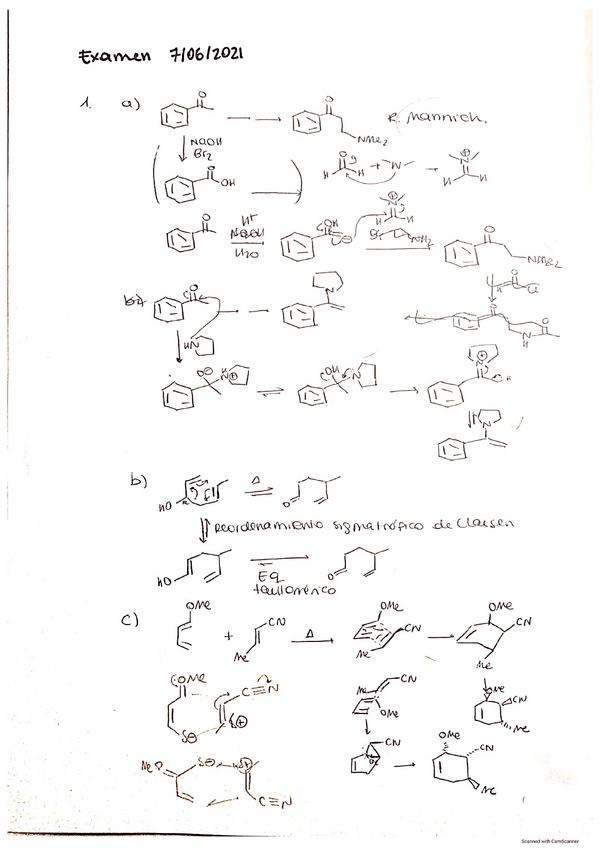 Examen 7/06/2021
1. a)
O
O
NMe2
R. Mannich.
NaOH
Br2
O
OH
O
H H
+
N
N
H H
O
H+
H2O
OH
N
H H
NH2
O
NMe2
O
Cl
O
O
N
H
b)
O
N
HN
O⊖
H
N⊕
OH
N
N⊕
H
N
b)
HO
Δ
O
Reordenamiento sigmatrópico de Claisen
HO
Eq
tautomérico
O
c)
OMe
+
CN
Me
Δ
OMe
CN
Me
OMe
CN
Me
OMe
C≡N
δ⊖
δ⊕
Me
CN
OMe
OMe
CN
Me
MeO
δ⊖
δ⊕
C≡N
CN
OMe
CN
Me
Scanned with CamScanner